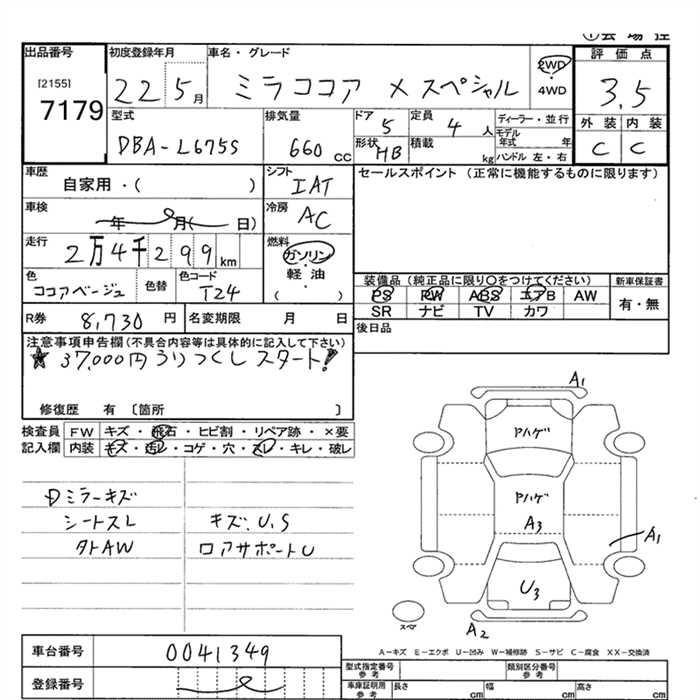 出品番号 初度登録年月 車名・グレード 2WD 評価点
[2155] 7179 22 5月 ミラココア X スペシャル 4WD 3.5
型式 排気量 ドア 5 定員 4人 ディーラー・並行 外装 内装
DBA-L675S 660cc 形状 HB 積載 kg モデル年式 年 ハンドル 左・右 C C
車歴 シフト セールスポイント(正常に機能するものに限ります)
自家用・( ) IAT
車検 年 月( 日) 冷房 AC
走行 2万4千299km 燃料 ガソリン・軽油・( )
色 ココアベージュ 色替 色コード T24
装備品(純正品に限り○をつけてください) 新車保証書
PS PW ABS エアB AW 有・無
SR ナビ TV カワ
R券 8,730円 名変期限 月 日 後日品
注意事項申告欄(不具合内容等は具体的に記入して下さい)
★37,000円 うりつくしスタート!
修復歴 有〔箇所 〕
検査員 FW キズ・飛石・ヒビ割・リペア跡・×要
記入欄 内装 キズ・汚レ・コゲ・穴・スレ・キレ・破レ
Dミラーキズ
シートスレ キズ、U、S
タトAW ロアサポートU
A1
Pハゲ
Pハゲ
A3
A1
U3
スペア
A2
A―キズ E―エクボ U―凹み W―補修跡 S―サビ C―腐食 XX―交換済
車台番号 0041349
登録番号
型式指定番号 参考 類別区分番号 参考
車庫証明用 参考 長さ cm 幅 cm 高さ cm